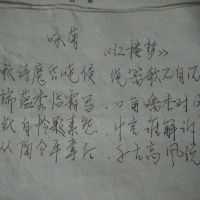 咏菊
《红楼梦》
诗魔昏晓侵 绕篱欹石自沉
蕴秀临霜写 口角噙香对月
自怜题素怨 片言谁解诉
从陶令平章后 千古高风说